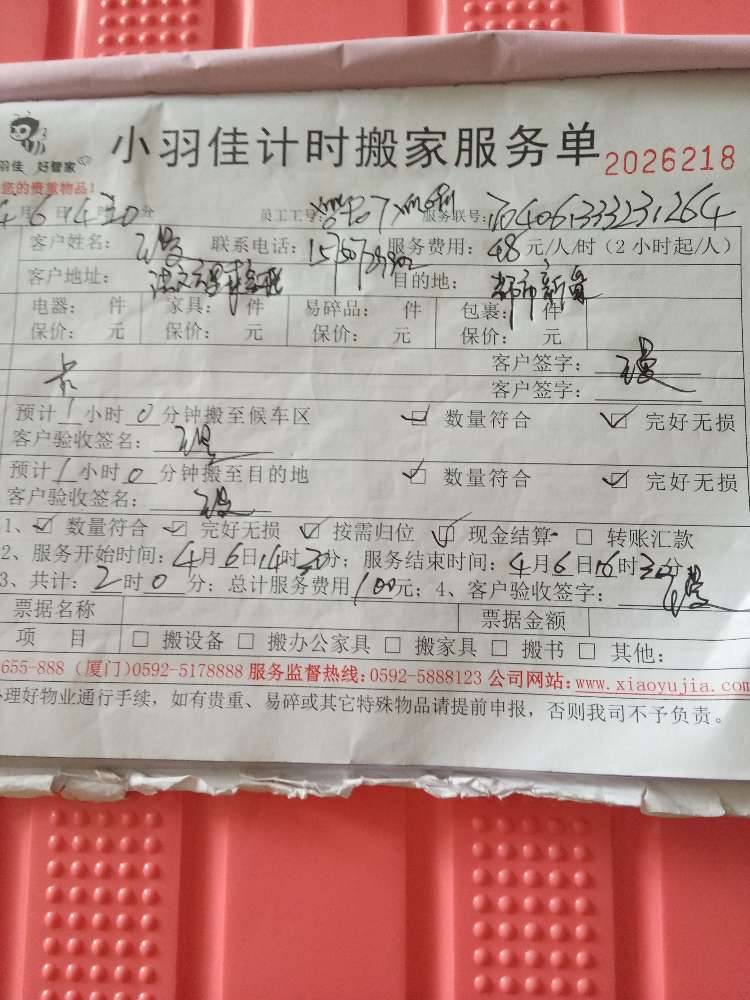 小羽佳计时搬家服务单 2026218
羽佳 好管家
您的贵重物品！
4月6日14时30分 员工工号： 服务联号：
客户姓名： 联系电话： 服务费用：48元/人/时（2小时起/人）
客户地址： 目的地：
电器： 件 家具： 件 易碎品： 件 包裹： 件
保价： 元 保价： 元 保价： 元 保价： 元
客户签字：
客户签字：
预计1小时0分钟搬至候车区 数量符合 完好无损
客户验收签名：
预计1小时0分钟搬至目的地 数量符合 完好无损
客户验收签名：
1、 数量符合 完好无损 按需归位 现金结算 转账汇款
2、服务开始时间：4月6日14时30分；服务结束时间：4月6日16时30分
3、共计：2时0分；总计服务费用100元；4、客户验收签字：
票据名称 票据金额
项 目 □ 搬设备 □ 搬办公家具 □ 搬家具 □ 搬书 □ 其他：
655-888（厦门）0592-5178888 服务监督热线：0592-5888123 公司网站：www.xiaoyujia.com
办理好物业通行手续，如有贵重、易碎或其它特殊物品请提前申报，否则我司不予负责。